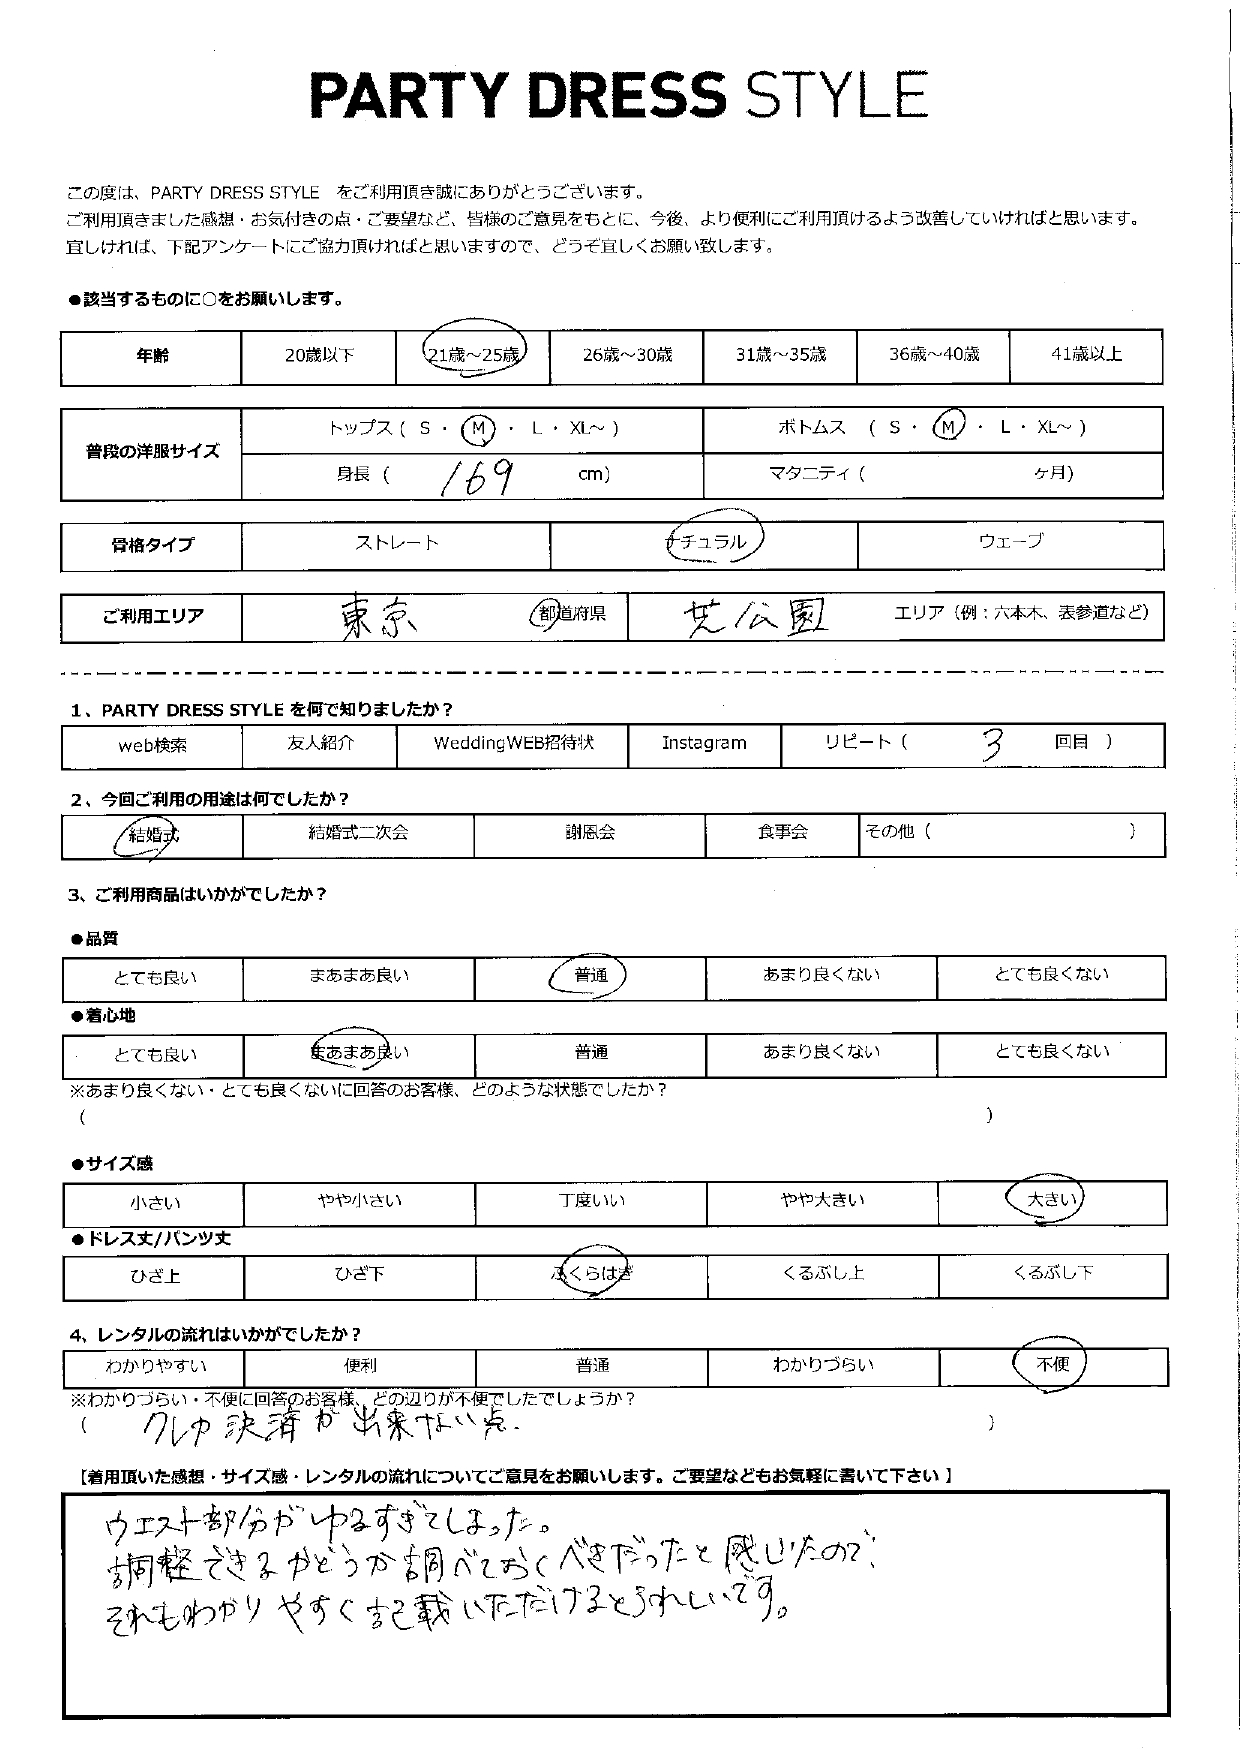 PARTY DRESS STYLE
この度は、PARTY DRESS STYLE をご利用頂き誠にありがとうございます。
ご利用頂きました感想・お気付きの点・ご要望など、皆様のご意見をもとに、今後、より便利にご利用頂けるよう改善していければと思います。
宜しければ、下記アンケートにご協力頂ければと思いますので、どうぞ宜しくお願い致します。
●該当するものに○をお願いします。
年齢 20歳以下 21歳～25歳 26歳～30歳 31歳～35歳 36歳～40歳 41歳以上
普段の洋服サイズ トップス ( S ・ M ・ L ・ XL～ ) ボトムス ( S ・ M ・ L ・ XL～ )
身長 ( 169 cm) マタニティ ( ヶ月)
骨格タイプ ストレート ナチュラル ウェーブ
ご利用エリア 東京 都道府県 芝公園 エリア（例：六本木、表参道など）
1、PARTY DRESS STYLE を何で知りましたか？
web検索 友人紹介 WeddingWEB招待状 Instagram リピート ( 3 回目 )
2、今回ご利用の用途は何でしたか？
結婚式 結婚式二次会 謝恩会 食事会 その他 ( )
3、ご利用商品はいかがでしたか？
●品質
とても良い まあまあ良い 普通 あまり良くない とても良くない
●着心地
とても良い まあまあ良い 普通 あまり良くない とても良くない
※あまり良くない・とても良くないに回答のお客様、どのような状態でしたか？
( )
●サイズ感
小さい やや小さい 丁度いい やや大きい 大きい
●ドレス丈/パンツ丈
ひざ上 ひざ下 ふくらはぎ くるぶし上 くるぶし下
4、レンタルの流れはいかがでしたか？
わかりやすい 便利 普通 わかりづらい 不便
※わかりづらい・不便に回答のお客様、どの辺りが不便でしたでしょうか？
( クレカ決済が出来ない点. )
【着用頂いた感想・サイズ感・レンタルの流れについてご意見をお願いします。ご要望などもお気軽に書いて下さい】
ウエスト部分がゆるすぎてしまった。
調整できるかどうか調べておくべきだったと感じたので、
それもわかりやすく記載いただけるとうれしいです。